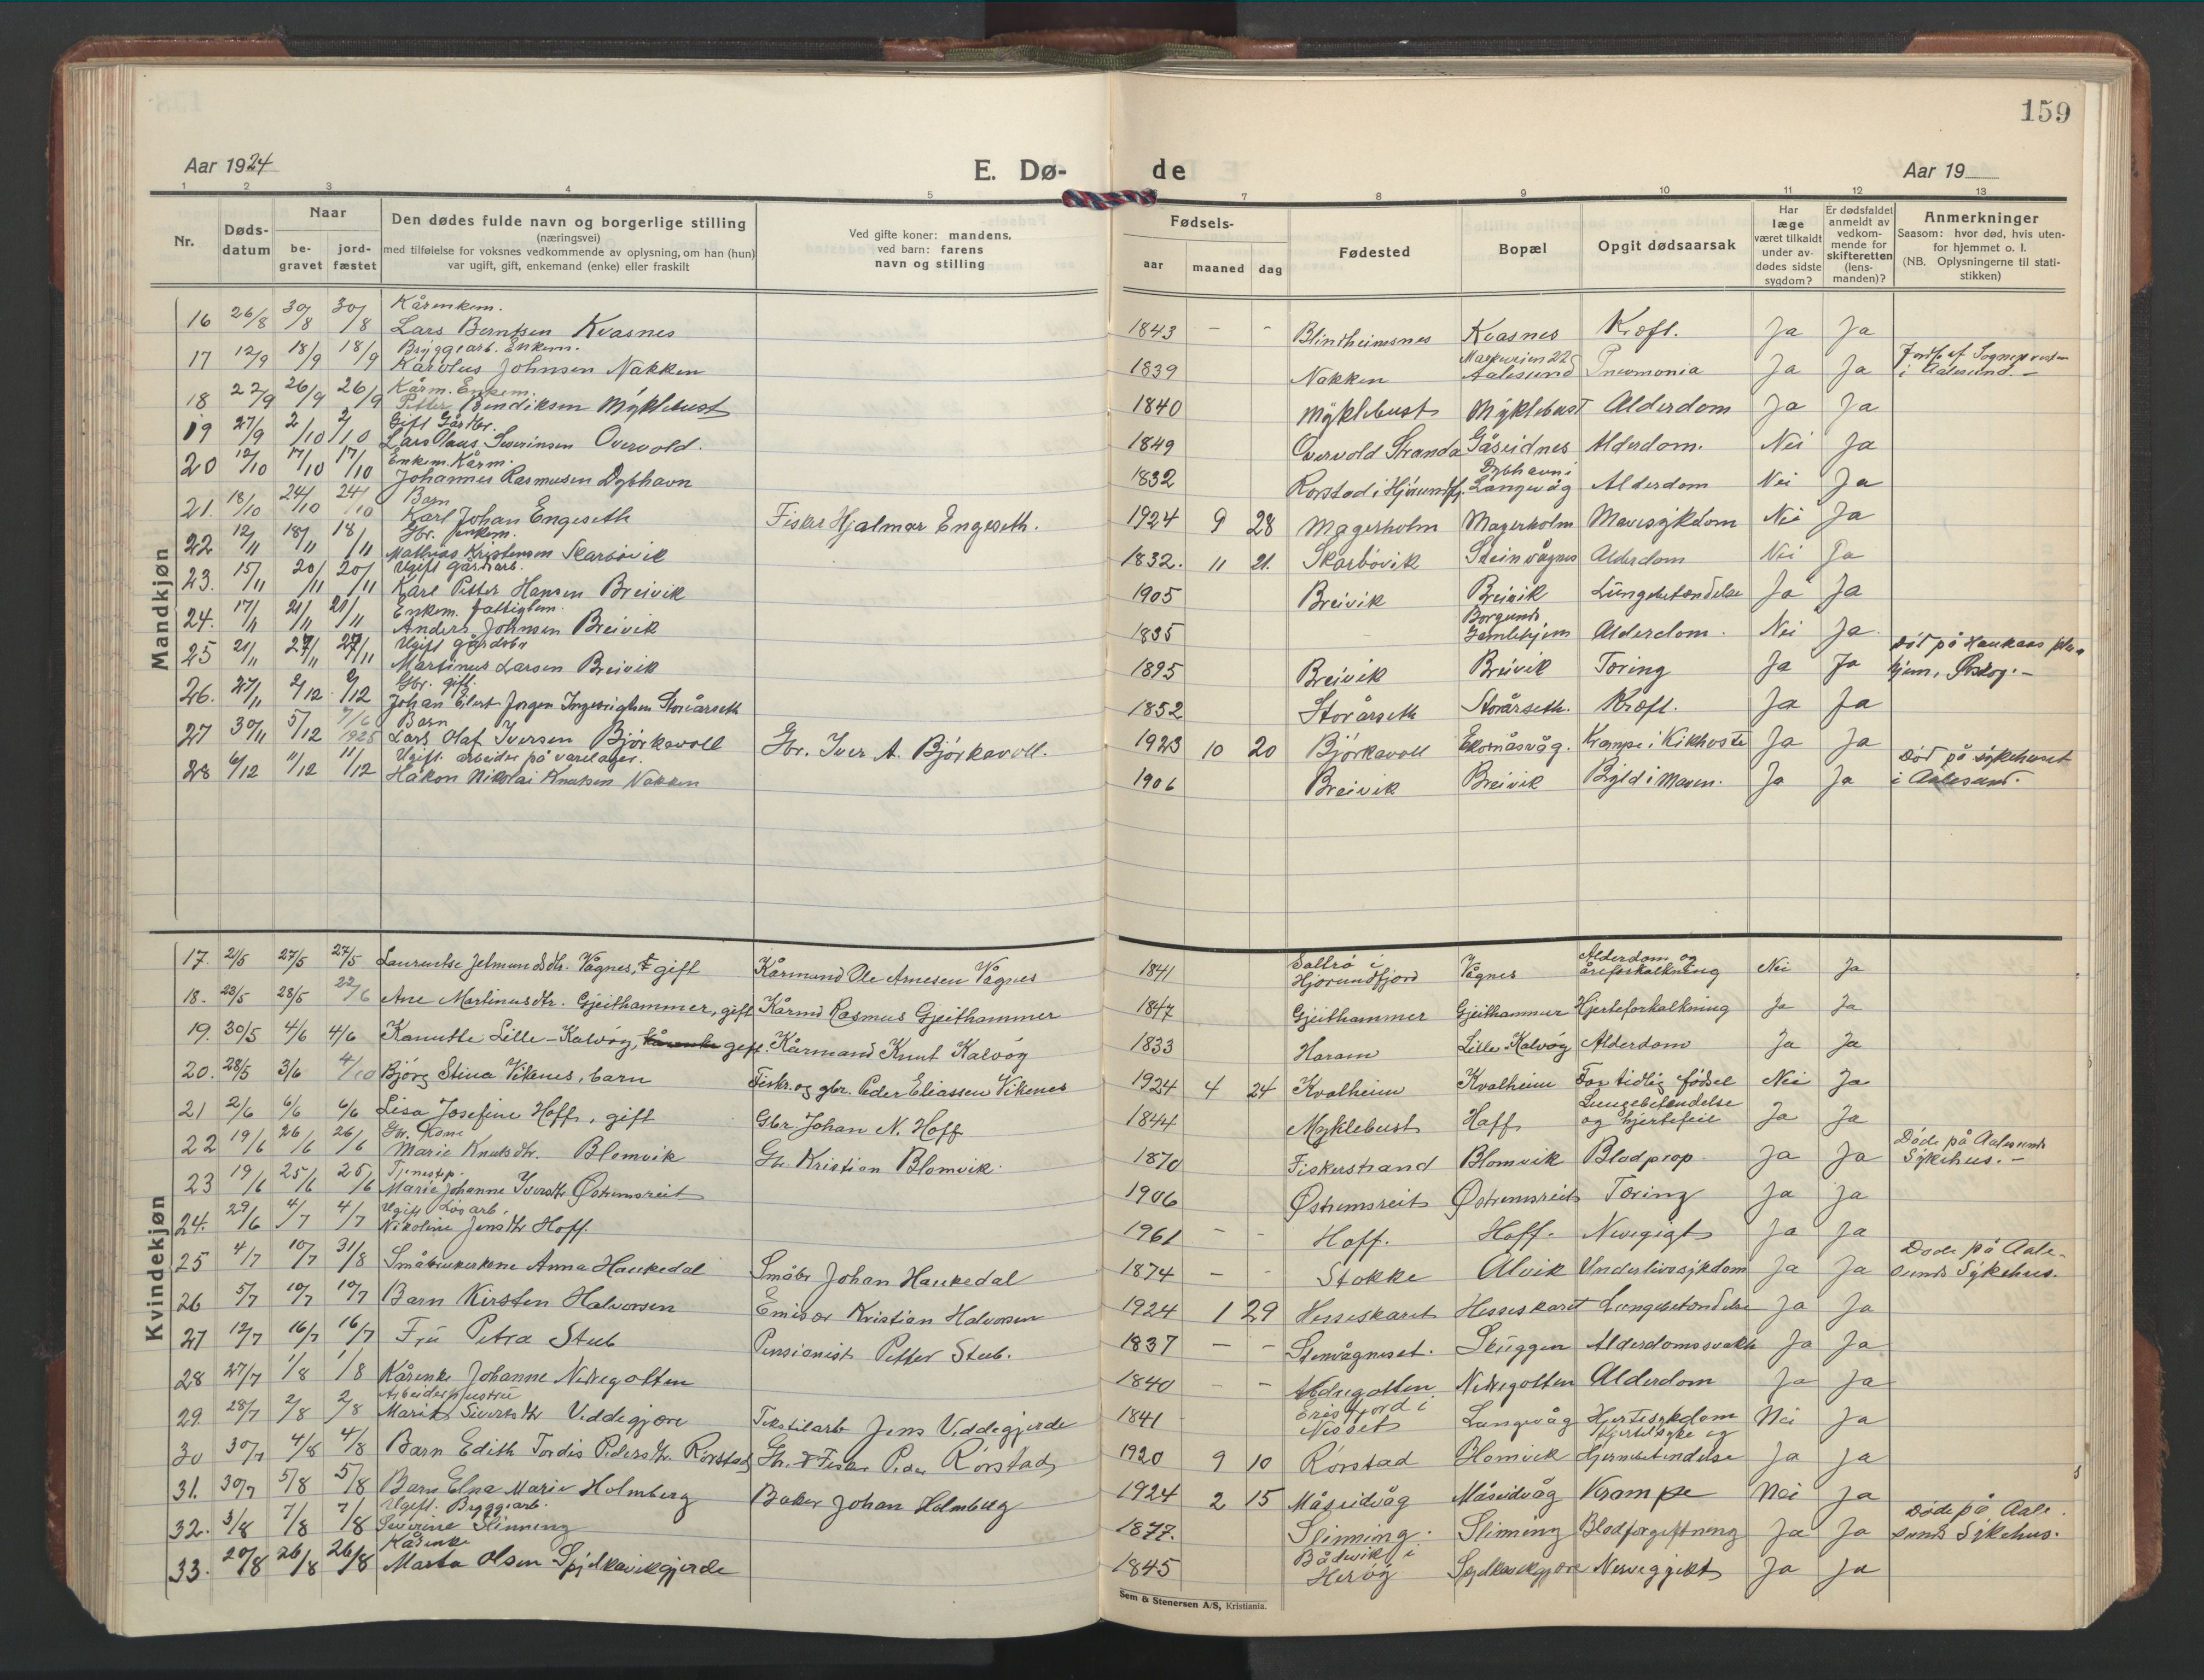 159
Aar 1924
E. Dø-
de
Aar 19
1 2 3 4 5 6 7 8 9 10 11 12 13
Nr.
Døds-datum
Naar
be-gravet
jord-fæstet
Den dødes fulde navn og borgerlige stilling
(næringsvei)
med tilføielse for voksnes vedkommende av oplysning, om han (hun)
var ugift, gift, enkemand (enke) eller fraskilt
Ved gifte koner: mandens,
ved barn: farens
navn og stilling
Fødsels-
aar maaned dag
Fødested
Bopæl
Opgit dødsaarsak
Har læge været tilkaldt under av-dødes sidste sygdom?
Er dødsfaldet anmeldt av vedkom-mende for skifteretten (lens-manden)?
Anmerkninger
Saasom: hvor død, hvis uten-
for hjemmet o. l.
(NB. Oplysningerne til stati-
stikken)
Mandkjøn
16 26/8 30/8 30/8 Kårenkem. Lars Berntsen Kvasnes 1843 - - Blindheimsnes Kvasnes Kræft. Ja Ja
17 12/9 18/9 18/9 Bryggearb. Enkem. Karolus Johnsen Nakken 1839 Nakken 22 Aalesund Pneumonia Ja Ja i Aalesund. -
18 22/9 26/9 26/9 Kårm. Enkem. Petter Bendiksen Myklebust 1840 Myklebust Myklebust Alderdom Ja Ja
19 27/9 2/10 2/10 Gift Lars Olaus Severinsen Overvold. 1849 Overvold Stranda Gåseidnes Alderdom. Nei Ja
20 12/10 17/10 17/10 Enkem. Kårm. Johannes Rasmusen Dybhavn 1832 Rørstad i Hjørundfj. Dybhavn i Langevåg Alderdom Nei Ja
21. 18/10 24/10 24/10 Barn Karl Johan Engeseth Fisker Hjalmar Engeseth. 1924 9 28 Magerholm Magerholm Mavesykdom Nei Ja
22 12/11 18/11 18/11 Gbr. Enkem. Mathias Kristensen Skarbøvik 1832. 11 21. Skarbøvik Steinvågnes Alderdom Nei Ja
23. 15/11 20/11 20/11 Ugift gårdsarb. Karl Petter Hansen Breivik 1905 Breivik Breivik Lungebetændelse Ja Ja
24. 17/11 21/11 21/11 Enkem. fattiglem. Anders Johnsen Breivik 1835 Borgund Gamlehjem Alderdom. Nei Ja
25 21/11 27/11 27/11 Ugift Martinus Larsen Breivik 1895 Breivik Breivik Tæring Ja Ja Død på Haukaas hjem,
26. 27/11 2/12 2/12 Gbr. gift. Johan Elert Jørgen Storårseth 1852 Storårseth Storårseth. Kræft. Ja Ja
27 30/11 5/12 7/6 1925 Barn Lars Olaf Iversen Bjørkavoll Gbr. Iver A. Bjørkavoll. 1923 10 20 Bjørkavoll Ekornåsvåg. Krampe i Kikhoste Ja Ja
28 6/12 11/12 11/12 Ugift. arbeider på varelager. Håkon Nikolai Knutsen Nakken 1906 Breivik Breivik Byld i Maven. Ja Ja Død på sykehuset i Aalesund.
Kvindekjøn
17. 21/5 27/5 27/5 Laurentse Jetmundsdtr. Vågnes, gift Kårmand Ole Arnesen Vågnes 1841 Sæbø i Hjørundfjord Vågnes Alderdom og åreforkalkning Nei Ja
18. 23/5 28/5 22/6 Ane Martinusdtr. Gjeithammer, gift Kårmd Rasmus Gjeithammer 1847 Gjeithammer Gjeithammer Hjerteforkalkning Ja Ja
19. 30/5 4/6 4/6 Kanutte Lille-Kalvøy, gift. Kårmand Knut Kalvøy 1833 Haram Lille Kalvøy Alderdom Ja Ja
20. 28/5 3/6 4/10 Bjørg Stina Vikenes, barn Fisker og gbr. Peder Eliassen Vikenes 1924 4 24 Kvalheim Kvalheim For tidlig fødsel Nei Ja
21 2/6 6/6 6/6 Lisa Josefine Hoff, gift Gbr Johan N. Hoff 1844 Myklebust Hoff Lungebetendelse og hjertefeil Ja Ja
22 19/6 26/6 26/6 Gbr. Kone Marie Knutsdtr. Blomvik Gbr Kristian Blomvik. 1870 Fiskerstrand Blomvik Blodprop Ja Ja Døde på Aalesunds Sykehus. -
23 19/6 25/6 25/6 Tjenestep. Marie Johanne Iversdtr Østremsreit 1906 Østremsreit Østremsreit Tæring Ja Ja
24. 29/6 4/7 4/7 Ugift Løsarb. Nikoline Jensdtr Hoff. 1961 - - Hoff. Hoff. Nervegigt Ja Ja
25 4/7 10/7 31/8 Småbrukerkone Anna Haukedal Småbr Johan Haukedal 1874 - - Stokke Alvik Underlivssykdom Ja Ja Døde på Aale-sunds Sykehus.
26 5/7 10/7 10/7 Barn Kirsten Halvorsen Emisær Kristian Halvorsen 1924 1 29 Hesseskaret Hesseskaret Lungebetændelse Ja Ja
27 12/7 16/7 16/7 Fru Petra Stub Pensionist Petter Stub. 1837 - - Stenvågneset. Skuggen Alderdomssvakh Ja Ja
28 27/7 1/8 1/8 Kårenke Johanne Nedregotten 1840 - - Nedregotten Nedregotten Alderdom Ja Ja
29. 28/7 2/8 2/8 Arbeiderhustru Marit Sivertsdtr Viddegjære Tekstilarb Jens Viddegjerde 1841 Erisfjord i Nesset Langevåg Hjertesykdom Nei Ja
30 30/7 4/8 4/8 Barn Edith Tordis Pedersdtr Rørstad Gbr. & Fisker Peder Rørstad 1920 9 10 Rørstad Blomvik Hjertesyke og Hjernebetendelse Ja Ja
31. 30/7 5/8 5/8 Barn Elna Marie Holmberg Baker Johan Holmberg 1924 2 15 Måseidvåg Måseidvåg Krampe Nei Ja
32. 3/8 7/8 7/8 Ugift. Byggearb. Severine Slinning 1877. Slinning. Slinning Blodforgiftning Ja Ja Døde på Aale-sunds Sykehus.
33. 20/8 26/8 26/8 Kårenke Marta Olsen Spjelkavikgjerde 1845 Bådsvik i Herøy Spjelkavikgjære Nervegigt Ja Ja
Sem & Stenersen A/S, Kristiania.